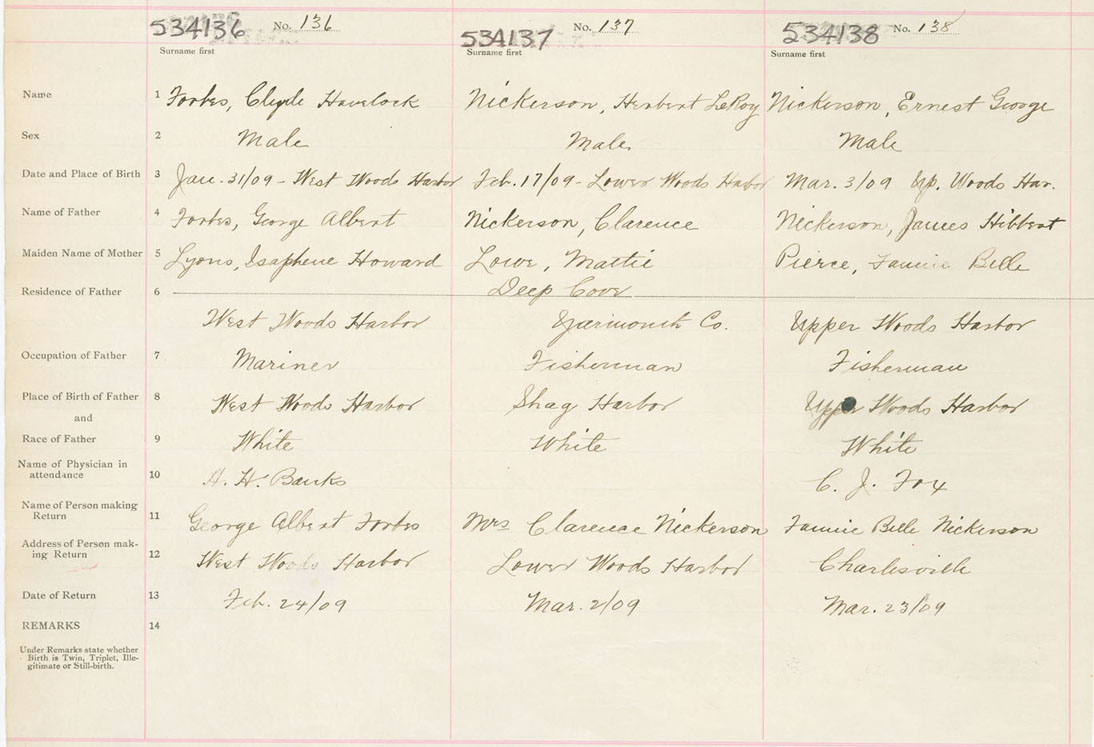 534136 No. 136 534137 No. 137 534138 No. 138
Surname first Surname first Surname first
Name 1 Forbes, Clyde Havelock Nickerson, Herbert LeRoy Nickerson, Ernest George
Sex 2 Male Male Male
Date and Place of Birth 3 Jan. 31/09 - West Woods Harbor Feb. 17/09 - Lower Woods Harbor Mar. 3/09 Up. Woods Har.
Name of Father 4 Forbes, George Albert Nickerson, Clarence Nickerson, James Hibbert
Maiden Name of Mother 5 Lyons, Isaphene Howard Lowe, Mattie Pierce, Fannie Belle
Residence of Father 6 Deep Cove
West Woods Harbor Yarmouth Co. Upper Woods Harbor
Occupation of Father 7 Mariner Fisherman Fisherman
Place of Birth of Father 8 West Woods Harbor Shag Harbor Upper Woods Harbor
and
Race of Father 9 White White White
Name of Physician in
attendance 10 A. H. Banks C. J. Fox
Name of Person making
Return 11 George Albert Forbes Mrs Clarence Nickerson Fannie Belle Nickerson
Address of Person mak-
ing Return 12 West Woods Harbor Lower Woods Harbor Charlesville
Date of Return 13 Feb. 24/09 Mar. 2/09 Mar. 23/09
REMARKS 14
Under Remarks state whether
Birth is Twin, Triplet, Ille-
gitimate or Still-birth.